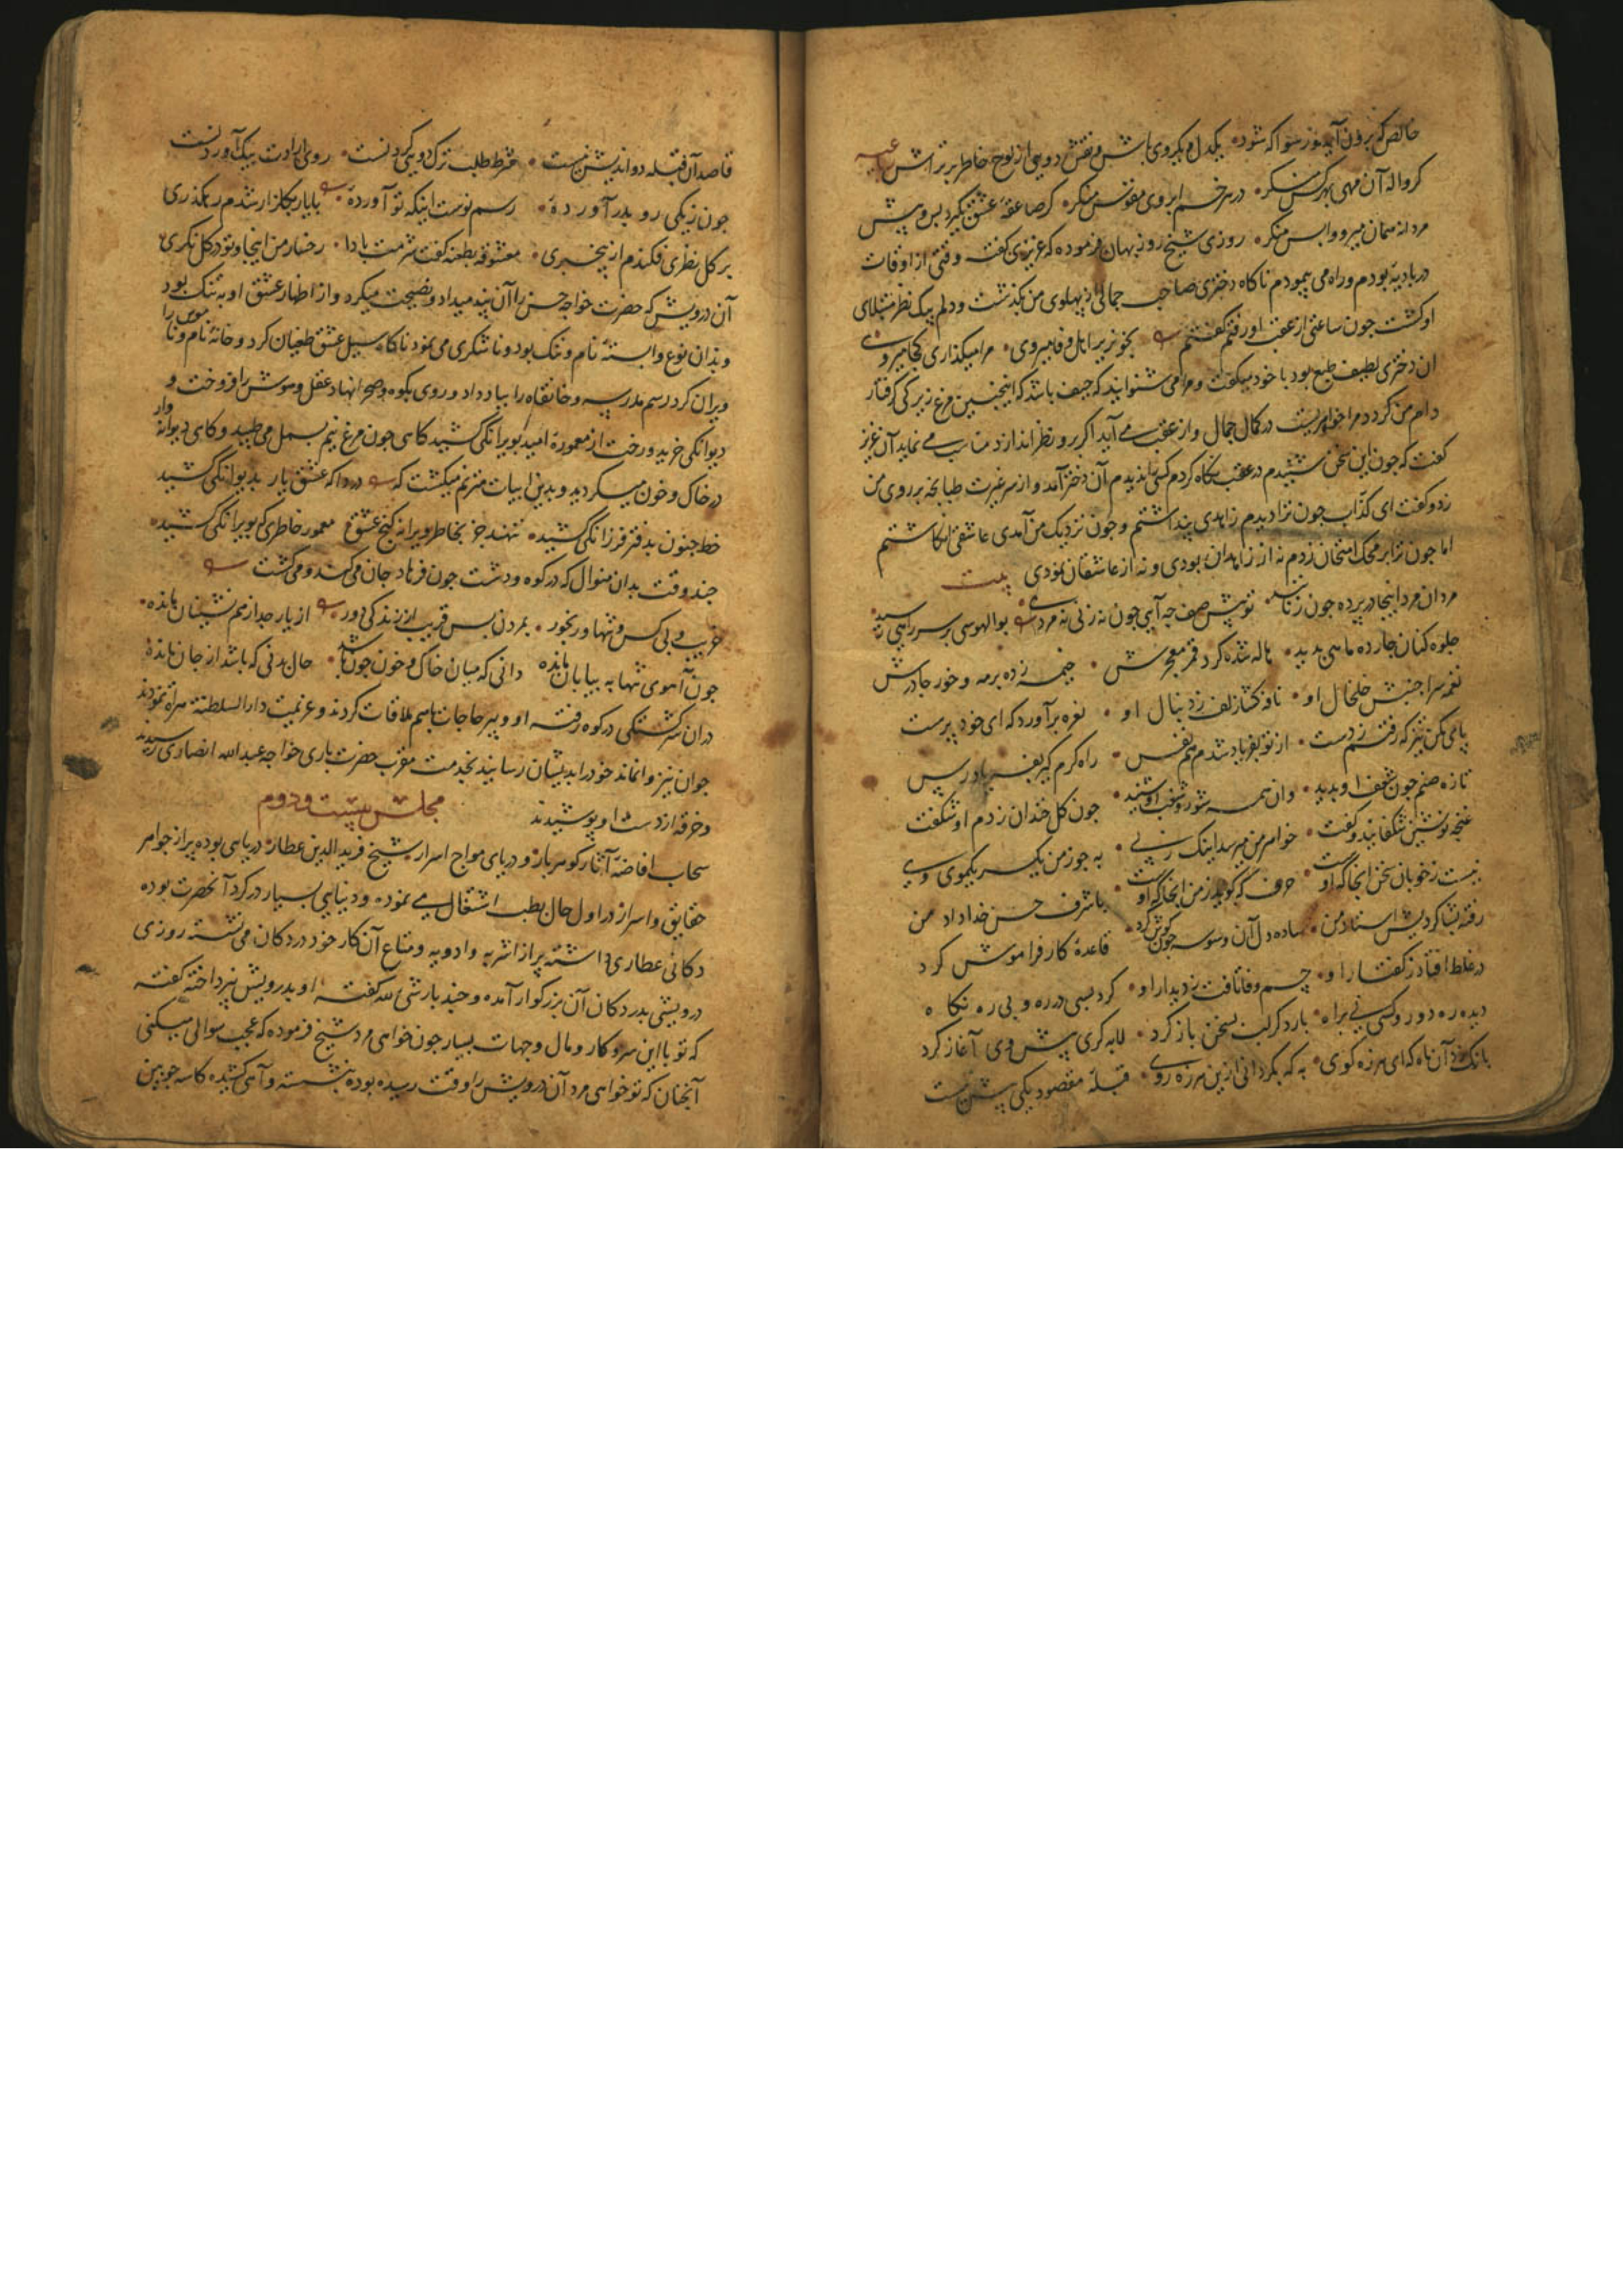 خالص که برون آید نرسوا که شود یکدل و یکروی باش و نقش دویی از لوح خاطر بتراش
کر واله آن مهی بهر کس منکر در هر خم ابروی مقوس منکر کر صاعقهٔ عشق بگیرد پس و پیش
مردانه همان میرو و واپس منکر روزی شیخ روزبهان فرموده که عزیزی گفت وقتی از اوقات
در بادیه بودم و راه می پیمودم ناکاه دختری صاحب جمالی از پهلوی من بگذشت و دلم بیک نظر مبتلای
او گشت چون ساعتی از عقب او رفتم گفتم مرا میگذاری کجا میروی
آن دختری لطیف طبع بود با خود میگفت و مرا می شنوانید که حیف باشد که اینچنین مرغ زیرکی گرفتار
دام من کردد مرا خواهریست در کمال جمال و از عقب می آید اگر برو نظر اندازد مناسب می نماید آن عزیز
گفت که چون این سخن شنیدم در عقب نگاه کردم کسی ندیدم آن دختر آمد و از سر غیرت طپانچه بر روی من
زد و گفت ای کذاب چون ترا دیدم زاهدی پنداشتم و چون نزدیک من آمدی عاشقی انکاشتم
اما چون ترا بر محک امتحان زدم نه از زاهدان بودی و نه از عاشقان نمودی بیت
مردان مرد اینجا در پرده چون زنانند تو پیش صف چه آیی چون نه زنی نه مردی بوالهوسی بر سر راهی رسید
جلوه کنان چارده ماهی بدید هاله شده کرد قمر معجرش خیمه زده بر مه و خور چادرش
نغمه سرا جنبش خلخال او نافه کشا زلف ز دنبال او نعره برآورد که ای خود پرست
پای مکن تیز که رفتم ز دست از تو بفریاد شدم هم نفس راه کرم گیر بفریاد رس
تازه صنم چون شعف او بدید وان همه شور و شغب او شنید چون کل خندان ز دم او شکفت
غنچه نوشین بشکفانید و گفت خواهر من میرسد اینک ز پی به چو من یکسر یکموی وی
نیست ز خوبان سخن آنجا که اوست حرف که گوید ز من آنجا که اوست با شرف حسن خداداد من
رفته بشاکردیش استاد من ساده دل آن وسوسه چون گوش کرد قاعدهٔ کار فراموش کرد
در غلط افتاد ز گفتار او چشم وفا تافت ز دیدار او کرد بسی در ره و بی ره نکاه
دیده ره دور و کسی نی براه بار دگر لب بسخن باز کرد لابه گری پیش وی آغاز کرد
بانک زد آن ماه که ای هرزه گوی به که بگردانی ازین هرزه روی قبلهٔ مقصود یکی بیش نیست
قاصد آن قبله دو اندیش نیست شرط طلب ترک دویی کردنست روی ارادت بیک آوردنست
چون ز یکی رو بدر آوردهٔ رسم نوست اینکه تو آوردهٔ با یار بگلزار شدم رهگذری
بر گل نظری فکندم از بیخبری معشوقه بطعنه گفت شرمت بادا رخسار من اینجا و تو در گل نگری
آن درویش که حضرت خواجه حسن را آن پند میداد و نصیحت میکرد و از اظهار عشق او به تنگ بود
و بدان نوع وابستهٔ نام و ننگ بود و ناشکری می نمود ناگاه سیل عشق طغیان کرد و خانهٔ نام و ناموس را
ویران کرد رسم مدرسه و خانقاه را بباد داد و روی بکوه و صحرا نهاد عقل و هوش را فروخت و
دیوانگی خرید و رخت از معمورهٔ امید بویرانگی کشید گاهی چون مرغ نیم بسمل می طپید و گاهی دیوانه وار
در خاک و خون میگردید و بدین ابیات مترنم میگشت که دردا که عشق یار بدیوانگی کشید
خط جنون بدفتر فرزانگی کشید ننهند جز بخاطر ویرانه گنج عشق معمور خاطری که بویرانگی کشید
چند وقت بدان منوال که در کوه و دشت چون فرهاد جان می کند و می گشت
غریب و بی کس و تنها و رنجور بمردن بس قریب از زندگی دور از یار جدا ز همنشینان مانده
چون آهوی تنها به بیابان مانده دانی که میان خاک و خون چون باشد حال بدنی که باشد از جان مانده
در آن سرگشتگی در کوه رفته او و پیر حاجات باهم ملاقات کردند و عزیمت دارالسلطنهٔ هراة نمودند
جوان نیز وانماند خود را بدیشان رسانید بخدمت مقرب حضرت باری خواجه عبدالله انصاری رسیدند
و خرقه از دست او پوشیدند مجلس بیست و دوم
سحاب افاضهٔ آثار گوهربار و دریای مواج اسرار شیخ فریدالدین عطار دریایی بوده پر از جواهر
حقایق و اسرار در اول حال بطب اشتغال می نموده و دنیایی بسیار در گرد آنحضرت بوده
دکانی عطاری داشته پر از اشربه و ادویه و متاع آن کار خود در دکان می نشسته روزی
درویشی بدر دکان آن بزرگوار آمده و چند بار شیء لله گفته او بدرویش نپرداخته گفته
که تو با این سر و کار و مال و جهات بسیار چون خواهی مرد شیخ فرموده که عجب سوالی میکنی
آنچنان که تو خواهی مرد آن درویش را وقت رسیده بوده نشسته و آهی کشیده کاسه چوبین